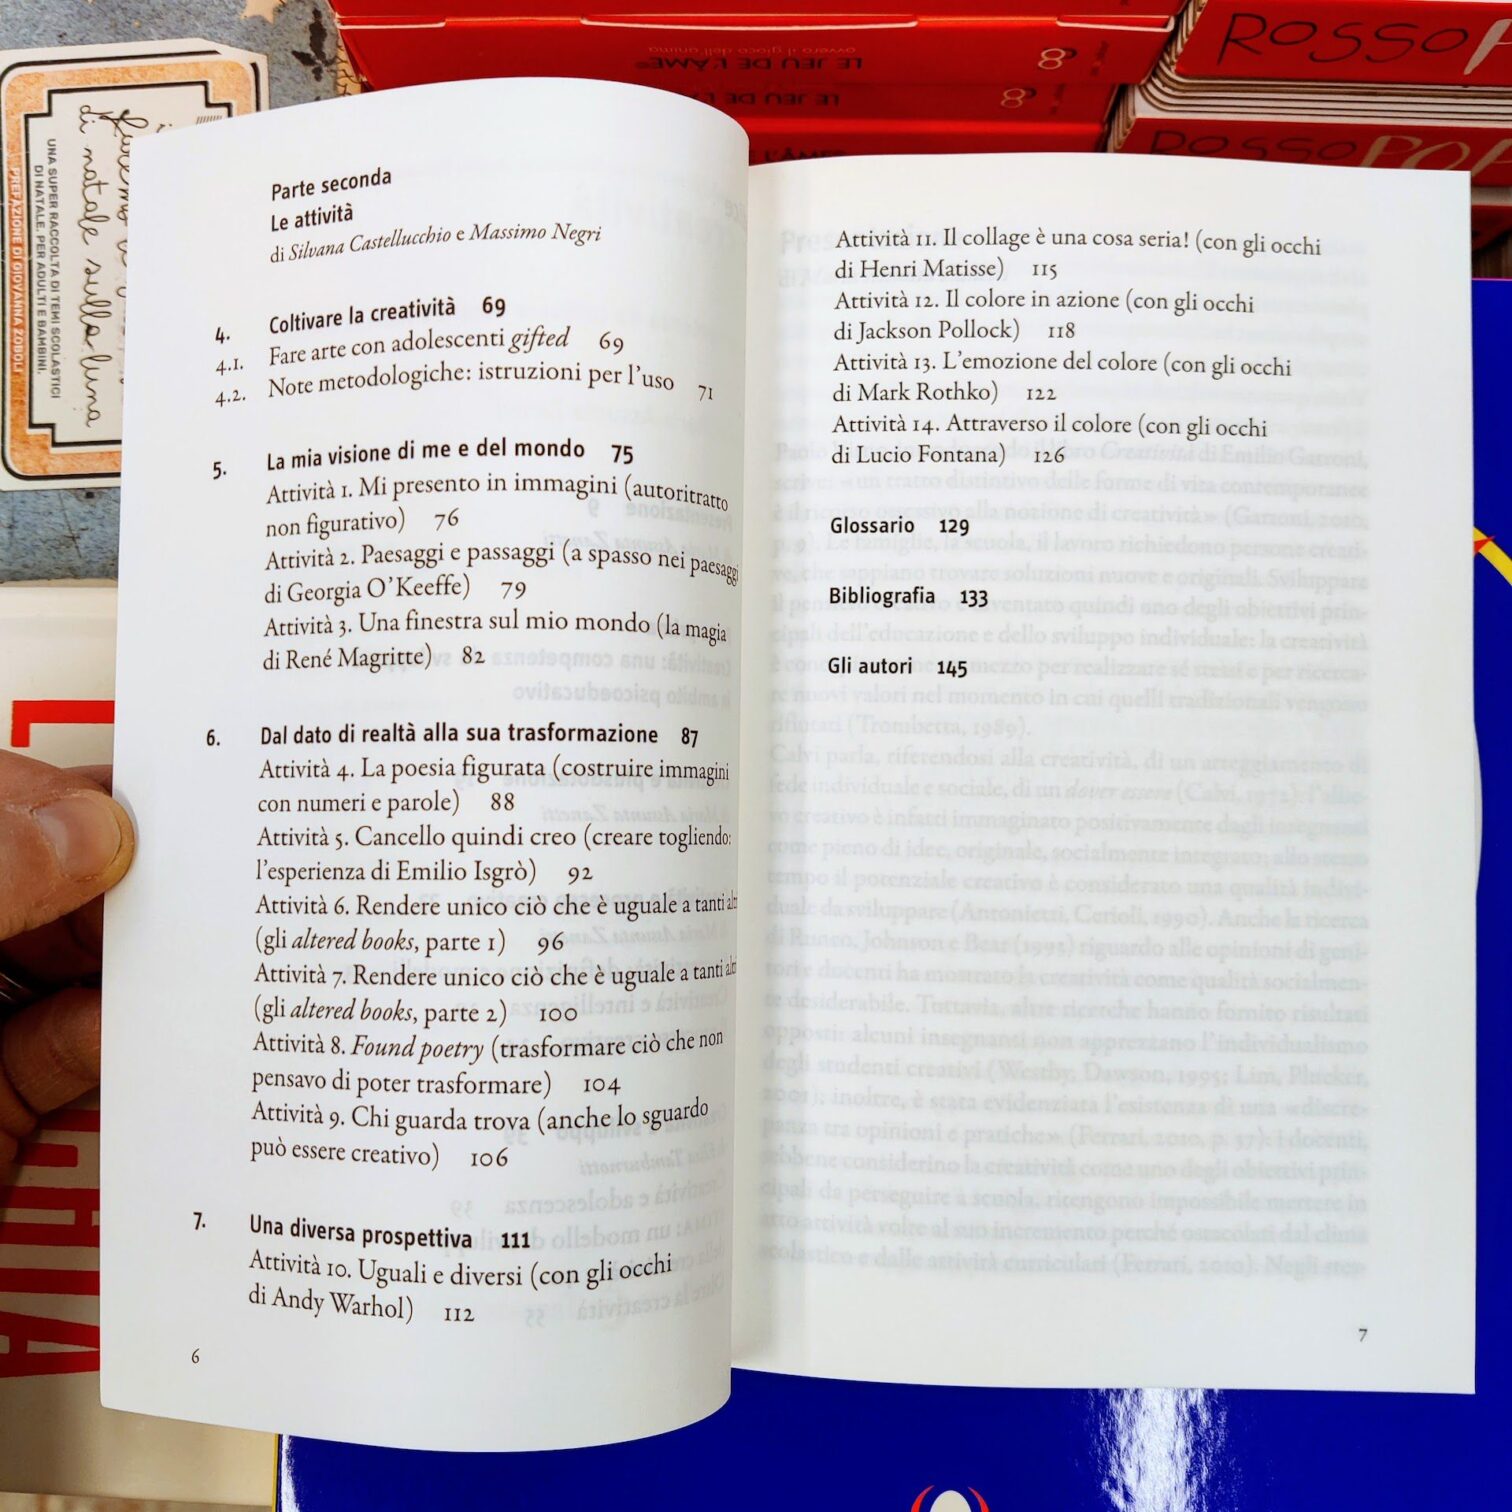 ROSSO
LE JEU DE L'AME
ovvero il gioco dell'anima
LE JEU DE
ROSSOPO
di natale sulla luna
UNA SUPER RACCOLTA DI TEMI SCOLASTICI
DI NATALE, PER ADULTI E BAMBINI.
PREFAZIONE DI GIOVANNA ZOBOLI
Parte seconda
Le attività
di Silvana Castellucchio e Massimo Negri
4. Coltivare la creatività 69
4.1. Fare arte con adolescenti gifted 69
4.2. Note metodologiche: istruzioni per l'uso 71
5. La mia visione di me e del mondo 75
Attività 1. Mi presento in immagini (autoritratto
non figurativo) 76
Attività 2. Paesaggi e passaggi (a spasso nei paesaggi
di Georgia O'Keeffe) 79
Attività 3. Una finestra sul mio mondo (la magia
di René Magritte) 82
6. Dal dato di realtà alla sua trasformazione 87
Attività 4. La poesia figurata (costruire immagini
con numeri e parole) 88
Attività 5. Cancello quindi creo (creare togliendo:
l'esperienza di Emilio Isgrò) 92
Attività 6. Rendere unico ciò che è uguale a tanti
(gli altered books, parte 1) 96
Attività 7. Rendere unico ciò che è uguale a tanti
(gli altered books, parte 2) 100
Attività 8. Found poetry (trasformare ciò che non
pensavo di poter trasformare) 104
Attività 9. Chi guarda trova (anche lo sguardo
può essere creativo) 106
7. Una diversa prospettiva 111
Attività 10. Uguali e diversi (con gli occhi
di Andy Warhol) 112
6
Attività 11. Il collage è una cosa seria! (con gli occhi
di Henri Matisse) 115
Attività 12. Il colore in azione (con gli occhi
di Jackson Pollock) 118
Attività 13. L'emozione del colore (con gli occhi
di Mark Rothko) 122
Attività 14. Attraverso il colore (con gli occhi
di Lucio Fontana) 126
Glossario 129
Bibliografia 133
Gli autori 145
7